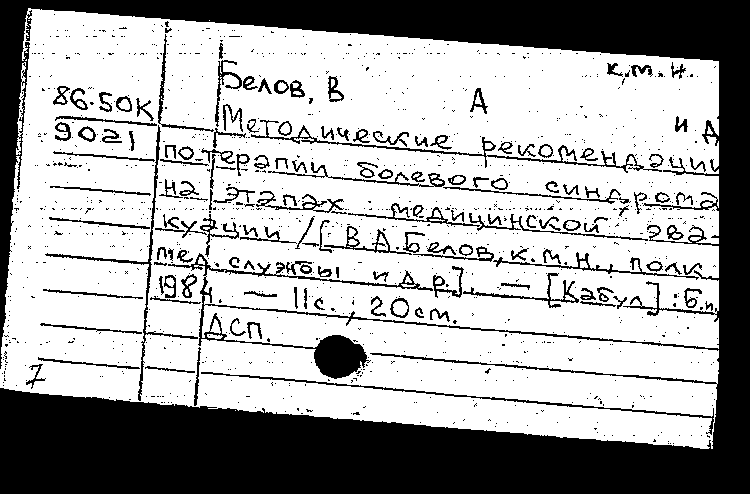 к.м.н.
Белов, В А
86.50К
и д
9021
Методические рекомендации
по терапии болевого синдрома
на этапах медицинской эва-
куации /[В.А.Белов, к.м.н., полк.
мед. службы и др.]. — [Кабул] : Б.и,
1984. — 11с. ; 20см.
ДСП.